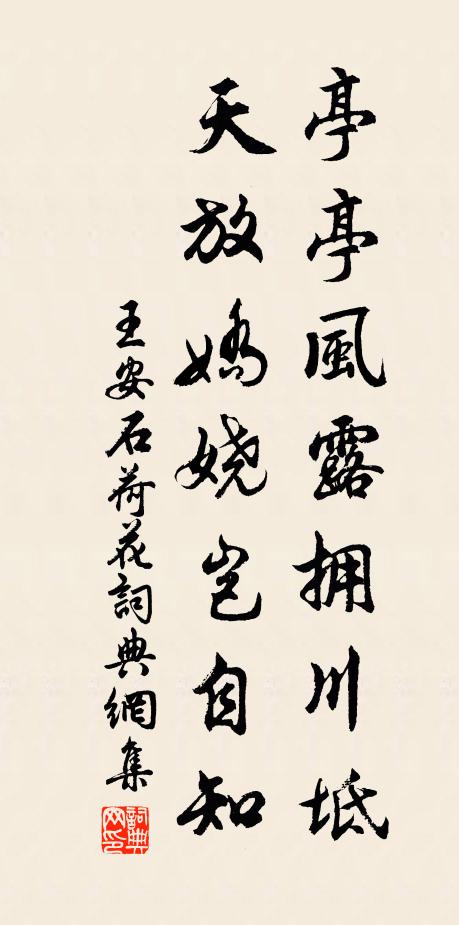 亭亭風露拥川坻
天放嬌嬈豈自知
王安石荷花詞典網集
詞典网印